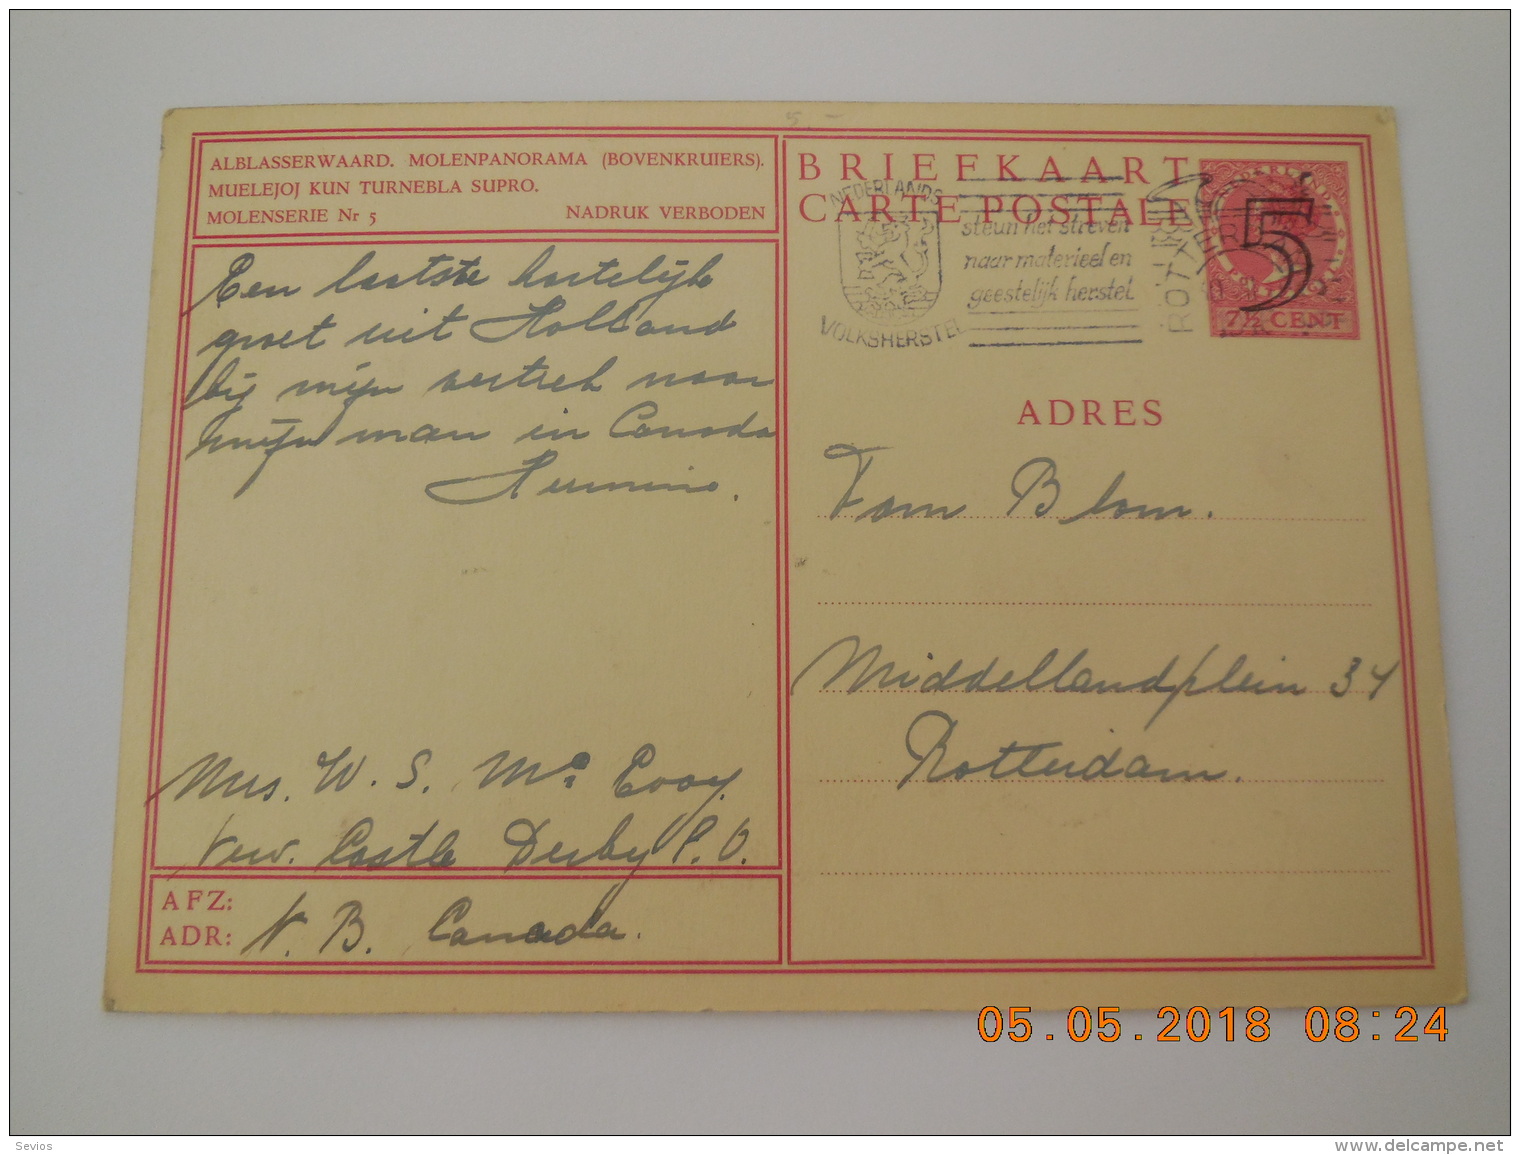 5.-
ALBLASSERWAARD. MOLENPANORAMA (BOVENKRUIERS).
MUELEJOJ KUN TURNEBLA SUPRO.
MOLENSERIE Nr 5 NADRUK VERBODEN
Een laatste hartelijke
groet uit Holland
bij mijn vertrek naar
mijn man in Canada
Hermine.
Mrs. W. S. Mc Cooy.
New. Castle Derby P.O.
AFZ:
ADR: N. B. Canada.
BRIEFKAART
CARTE POSTALE
NEDERLANDS
VOLKSHERSTEL
steun het streven
naar materieel en
geestelijk herstel
ROTTERDAM
5
7½ CENT
ADRES
Fam Blom.
Middellandplein 34
Rotterdam.
05.05.2018 08:24
Sevios
www.delcampe.net